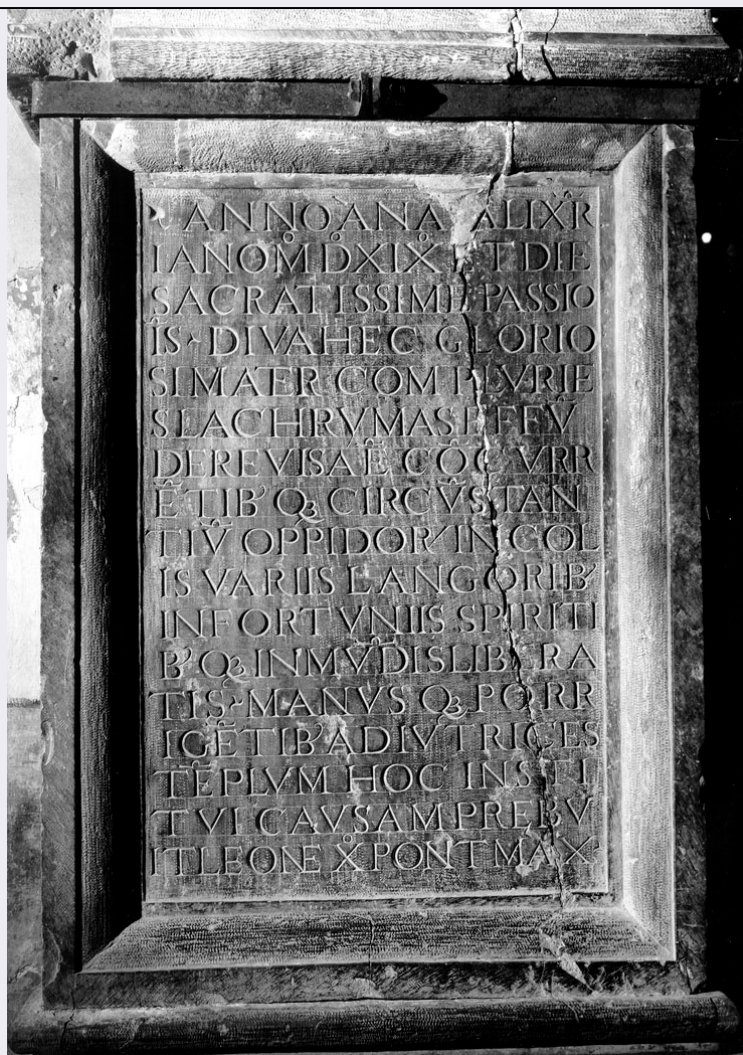 ANNO A NATALI XR̄
IANO M D XIX ET DIE
SACRATISSIME PASSIO
ĪS · DIVA HEC GLORIO
SI MATER COMPLVRIE
S LACHRVMAS EFFV̄
DERE VISA Ē CŌCVRR
ĒTIB' Q; CIRCV̄STAN
TIV̄ OPPIDOR' INCOL
IS VARIIS LANGORIB'
INFORTVNIIS SPIRITI
B' Q; INMV̄DIS LIBERA
TIS · MANVS Q; PORR
IGĒTIB' ADIVTRICES
TĒPLVM HOC INSTI
TVI CAVSAM PREBV
IT LEONE X̊ PONT MAX